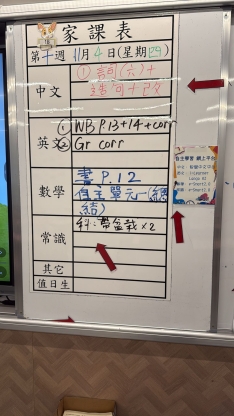 家課表
第十週 11月4日(星期四)
中文
① 詞(六)+
造句+改
英文
① WB P.13+14+corr
② Gr corr
數學
書 P.12
自主單元一(總
結)
常識
科:帶盆栽×2
其它
值日生
自主學習 網上平台